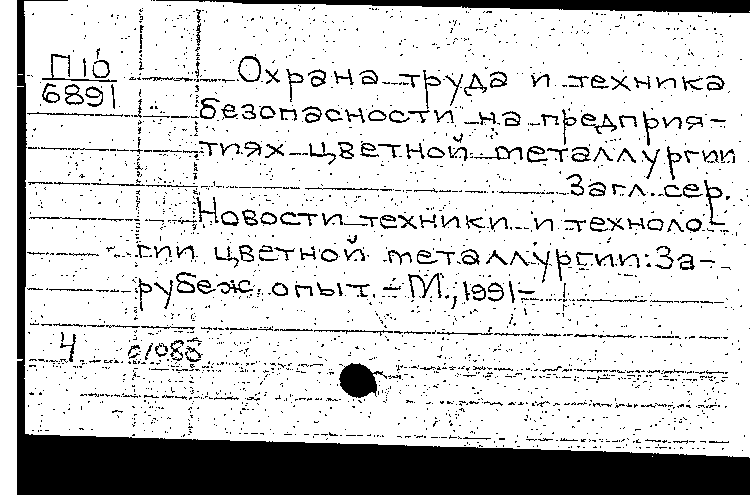 П16
6891
Охрана труда и техника
безопасности на предприя-
тиях цветной металлургии
Загл. сер.
Новости техники и техноло-
гии цветной металлургии: За-
рубеж. опыт. – М., 1991 –
4 с/088